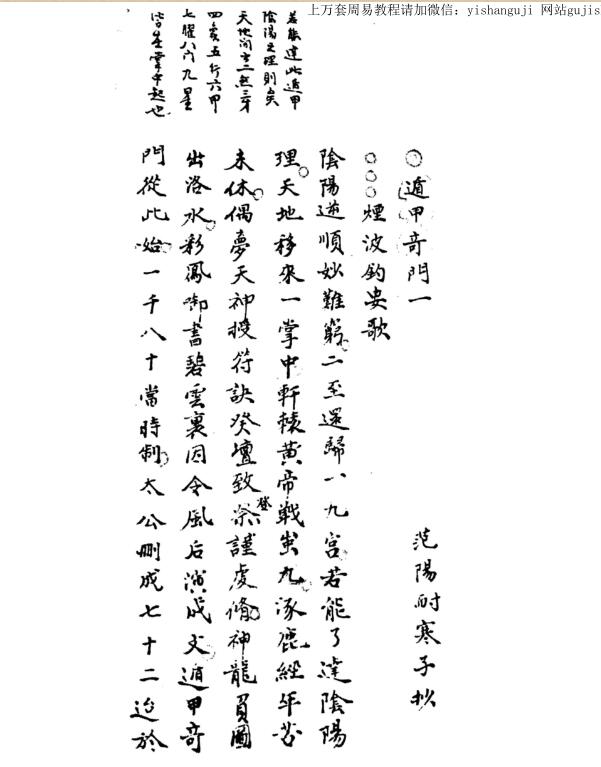 上万套周易教程请加微信：yishanguji 网站gujis
若能達此遁甲
陰陽之理則矣
天地间二炁三才
四象五行六甲
七曜八門九星
皆在掌中起也
遁甲奇門一
范陽耐寒子抄
煙波釣叟歌
陰陽逆順妙難窮二至還歸九宮若能了達陰陽
理天地移來一掌中軒轅黃帝戰蚩尤涿鹿經年苦
未休偶夢天神授符訣癸壇致祭謹虔脩神龍負圖
登
出洛水彩鳳啣書碧雲裏因令風后演成文遁甲奇
門從此始一千八十當時制太公刪成七十二迨於